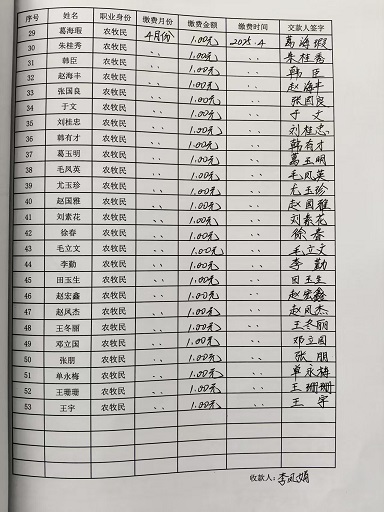 序号 姓名 职业身份 缴费月份 缴费金额 缴费时间 交款人签字
29 葛海瑕 农牧民 4月份 1.00元 2025.4 葛海瑕
30 朱桂秀 农牧民 〃 1.00元 〃 朱桂秀
31 韩臣 农牧民 〃 1.00元 〃 韩臣
32 赵海丰 农牧民 〃 1.00元 〃 赵海丰
33 张国良 农牧民 〃 1.00元 〃 张国良
34 于文 农牧民 〃 1.00元 〃 于文
35 刘桂忠 农牧民 〃 1.00元 〃 刘桂忠
36 韩有才 农牧民 〃 1.00元 〃 韩有才
37 葛玉明 农牧民 〃 1.00元 〃 葛玉明
38 毛凤英 农牧民 〃 1.00元 〃 毛凤英
39 尤玉珍 农牧民 〃 1.00元 〃 尤玉珍
40 赵国雅 农牧民 〃 1.00元 〃 赵国雅
41 刘素花 农牧民 〃 1.00元 〃 刘素花
42 徐春 农牧民 〃 1.00元 〃 徐春
43 毛立文 农牧民 〃 1.00元 〃 毛立文
44 李勤 农牧民 〃 1.00元 〃 李勤
45 田玉生 农牧民 〃 1.00元 〃 田玉生
46 赵宏鑫 农牧民 〃 1.00元 〃 赵宏鑫
47 赵凤杰 农牧民 〃 1.00元 〃 赵凤杰
48 王冬丽 农牧民 〃 1.00元 〃 王冬丽
49 邓立国 农牧民 〃 1.00元 〃 邓立国
50 张朋 农牧民 〃 1.00元 〃 张朋
51 单永梅 农牧民 〃 1.00元 〃 单永梅
52 王珊珊 农牧民 〃 1.00元 〃 王珊珊
53 王宇 农牧民 〃 1.00元 〃 王宇
收款人：李凤娟